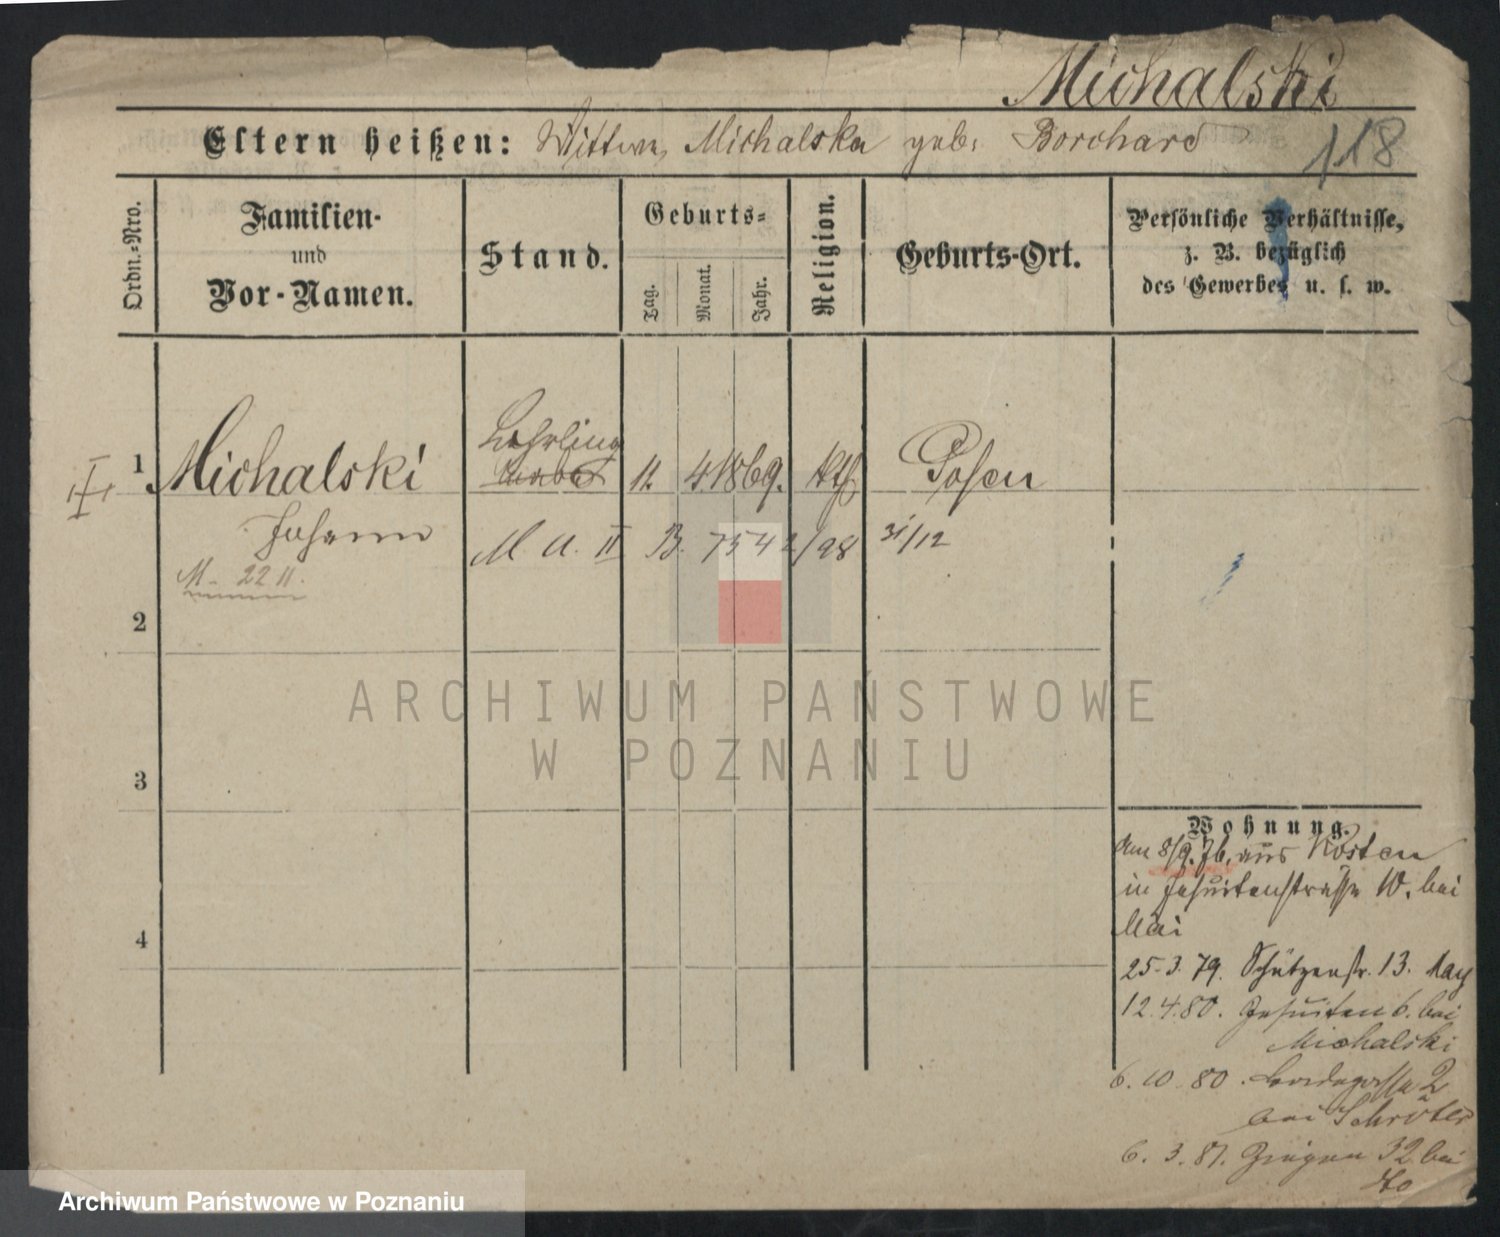 Michalski
Eltern heißen: Wittwe Michalska geb. Borchard
118
Ordn.-Nro.
Familien-
und
Vor-Namen.
Stand.
Geburts-
Tag.
Monat.
Jahr.
Religion.
Geburts-Ort.
Persönliche Verhältnisse,
z. B. bezüglich
des Gewerbes u. s. w.
1 Michalski Lehrling 11. 4. 1869. kth Posen
Johann
M. U. II B. 7542/98 31/12
M. 22 11.
2
3
4
ARCHIWUM PAŃSTWOWE
W POZNANIU
Wohnung.
Am 8/9. 76. aus Kosten
in Jesuitenstrasse 10. bei
Mai
25.3.79. Schützenstr. 13.
12.4.80. Jesuiten 6. bei
Michalski
6.10.80. 2
bei Schröter
6.3.81. Ziegen 32 bei
Archiwum Państwowe w Poznaniu